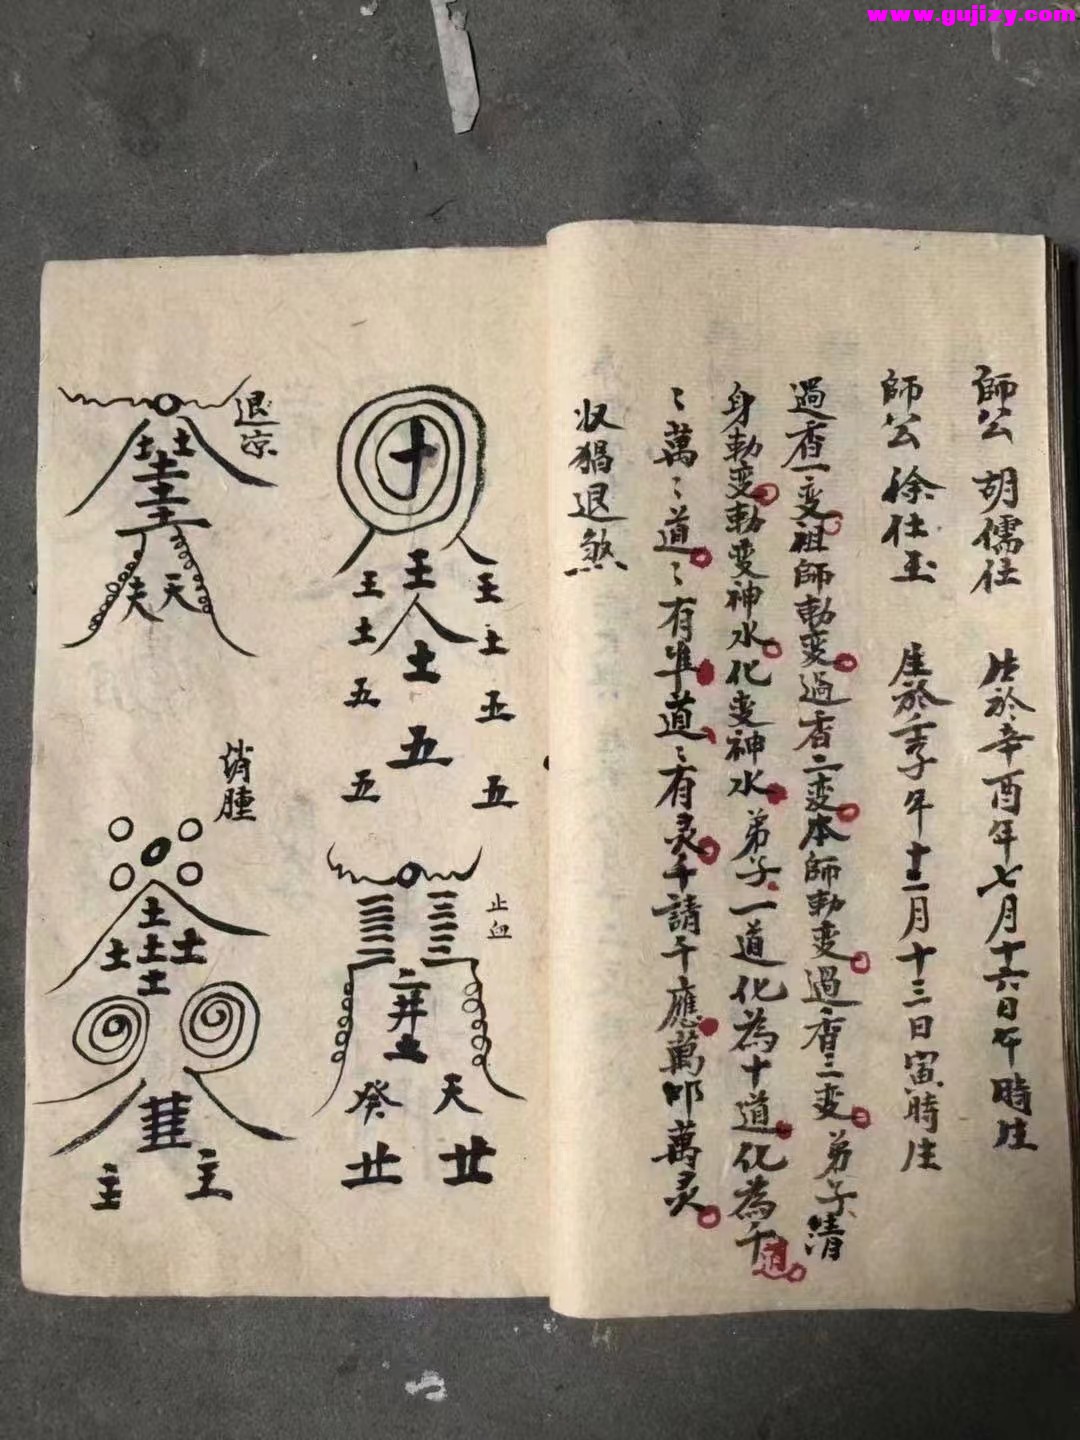 www.gujizy.com
師公 胡儒仕 生於辛酉年七月十六日午時生
師公 徐仕玉 生於壬子年十二月十三日寅時生
過香一变祖師勅变過香二变本師勅变過香三变弟子清
身勅变勅变神水化变神水弟子一道化為十道化為千道
〻萬〻道〻有準道〻有灵千請千應萬叩萬灵
收猖退煞
十
王 王 王
土 人 土
五 土 五
五 五 五
止血
二井土
癸 天
廿 廿
退凉
土 土
夫 天
消腫
土
土 土 土
土
主 主